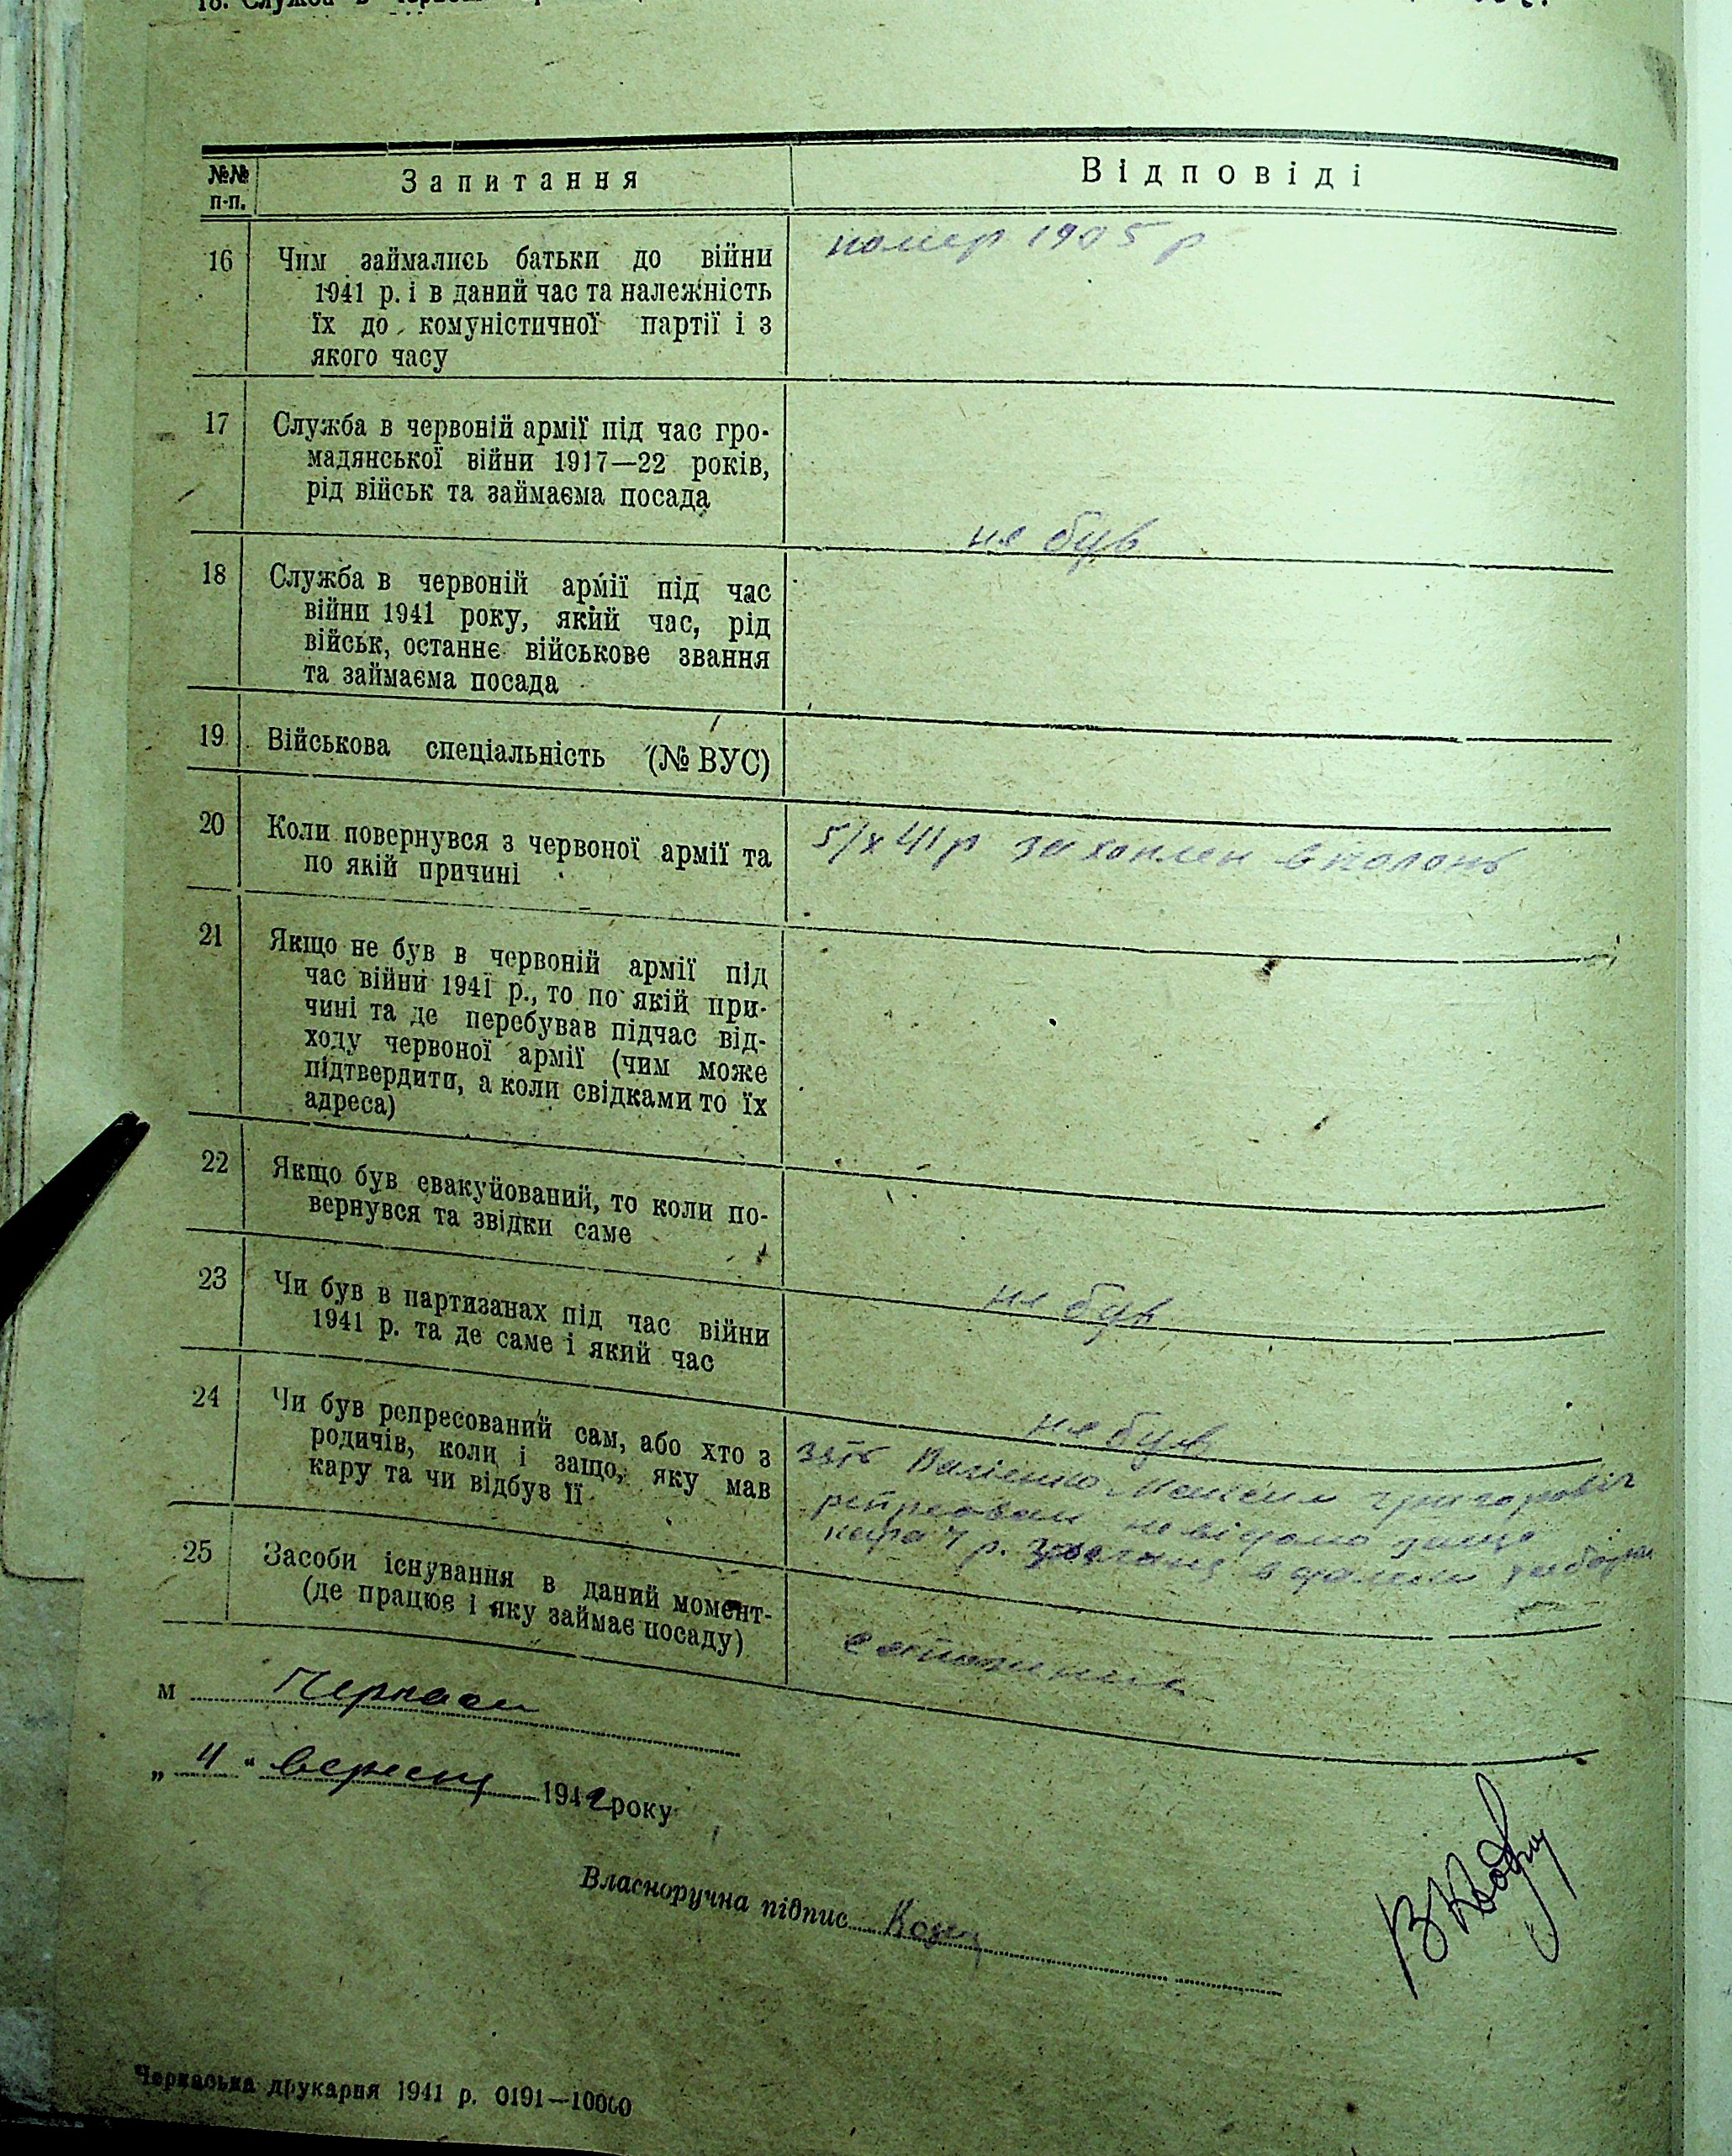 18. Служба в
№№ п-п.
Запитання
Відповіді
16
Чим займались батьки до війни
1941 р. і в даний час та належність
їх до комуністичної партії і з
якого часу
помер 1905 р
17
Служба в червоній армії під час гро-
мадянської війни 1917—22 років,
рід військ та займаєма посада
не був
18
Служба в червоній армії під час
війни 1941 року, який час, рід
військ, останнє військове звання
та займаєма посада
19
Військова спеціальність (№ ВУС)
20
Коли повернувся з червоної армії та
по якій причині
5/х 41 р захоплен в полонь
21
Якщо не був в червоній армії під
час війни 1941 р., то по якій при-
чині та де перебував підчас від-
ходу червоної армії (чим може
підтвердити, а коли свідками то їх
адреса)
22
Якщо був евакуйований, то коли по-
вернувся та звідки саме
23
Чи був в партизанах під час війни
1941 р. та де саме і який час
не був
24
Чи був репресований сам, або хто з
родичів, коли і защо, яку мав
кару та чи відбув її
не був
зять Максим Григоровіч
репресован невідомо защо
р. в
25
Засоби існування в даний момент-
(де працює і яку займає посаду)
м Черкаси
„ 4 “ вересня 1942 року
Власноручна підпис
Черкаська друкарня 1941 р. 0191—10000